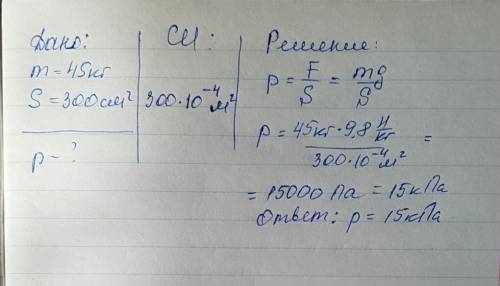 Дано:
m = 45 кг
S = 300 см²
p - ?
СИ:
300·10⁻⁴ м²
Решение:
p = F/S = mg/S
p = 45 кг · 9,8 Н/кг / 300·10⁻⁴ м² =
= 15000 Па = 15 кПа
Ответ: p = 15 кПа